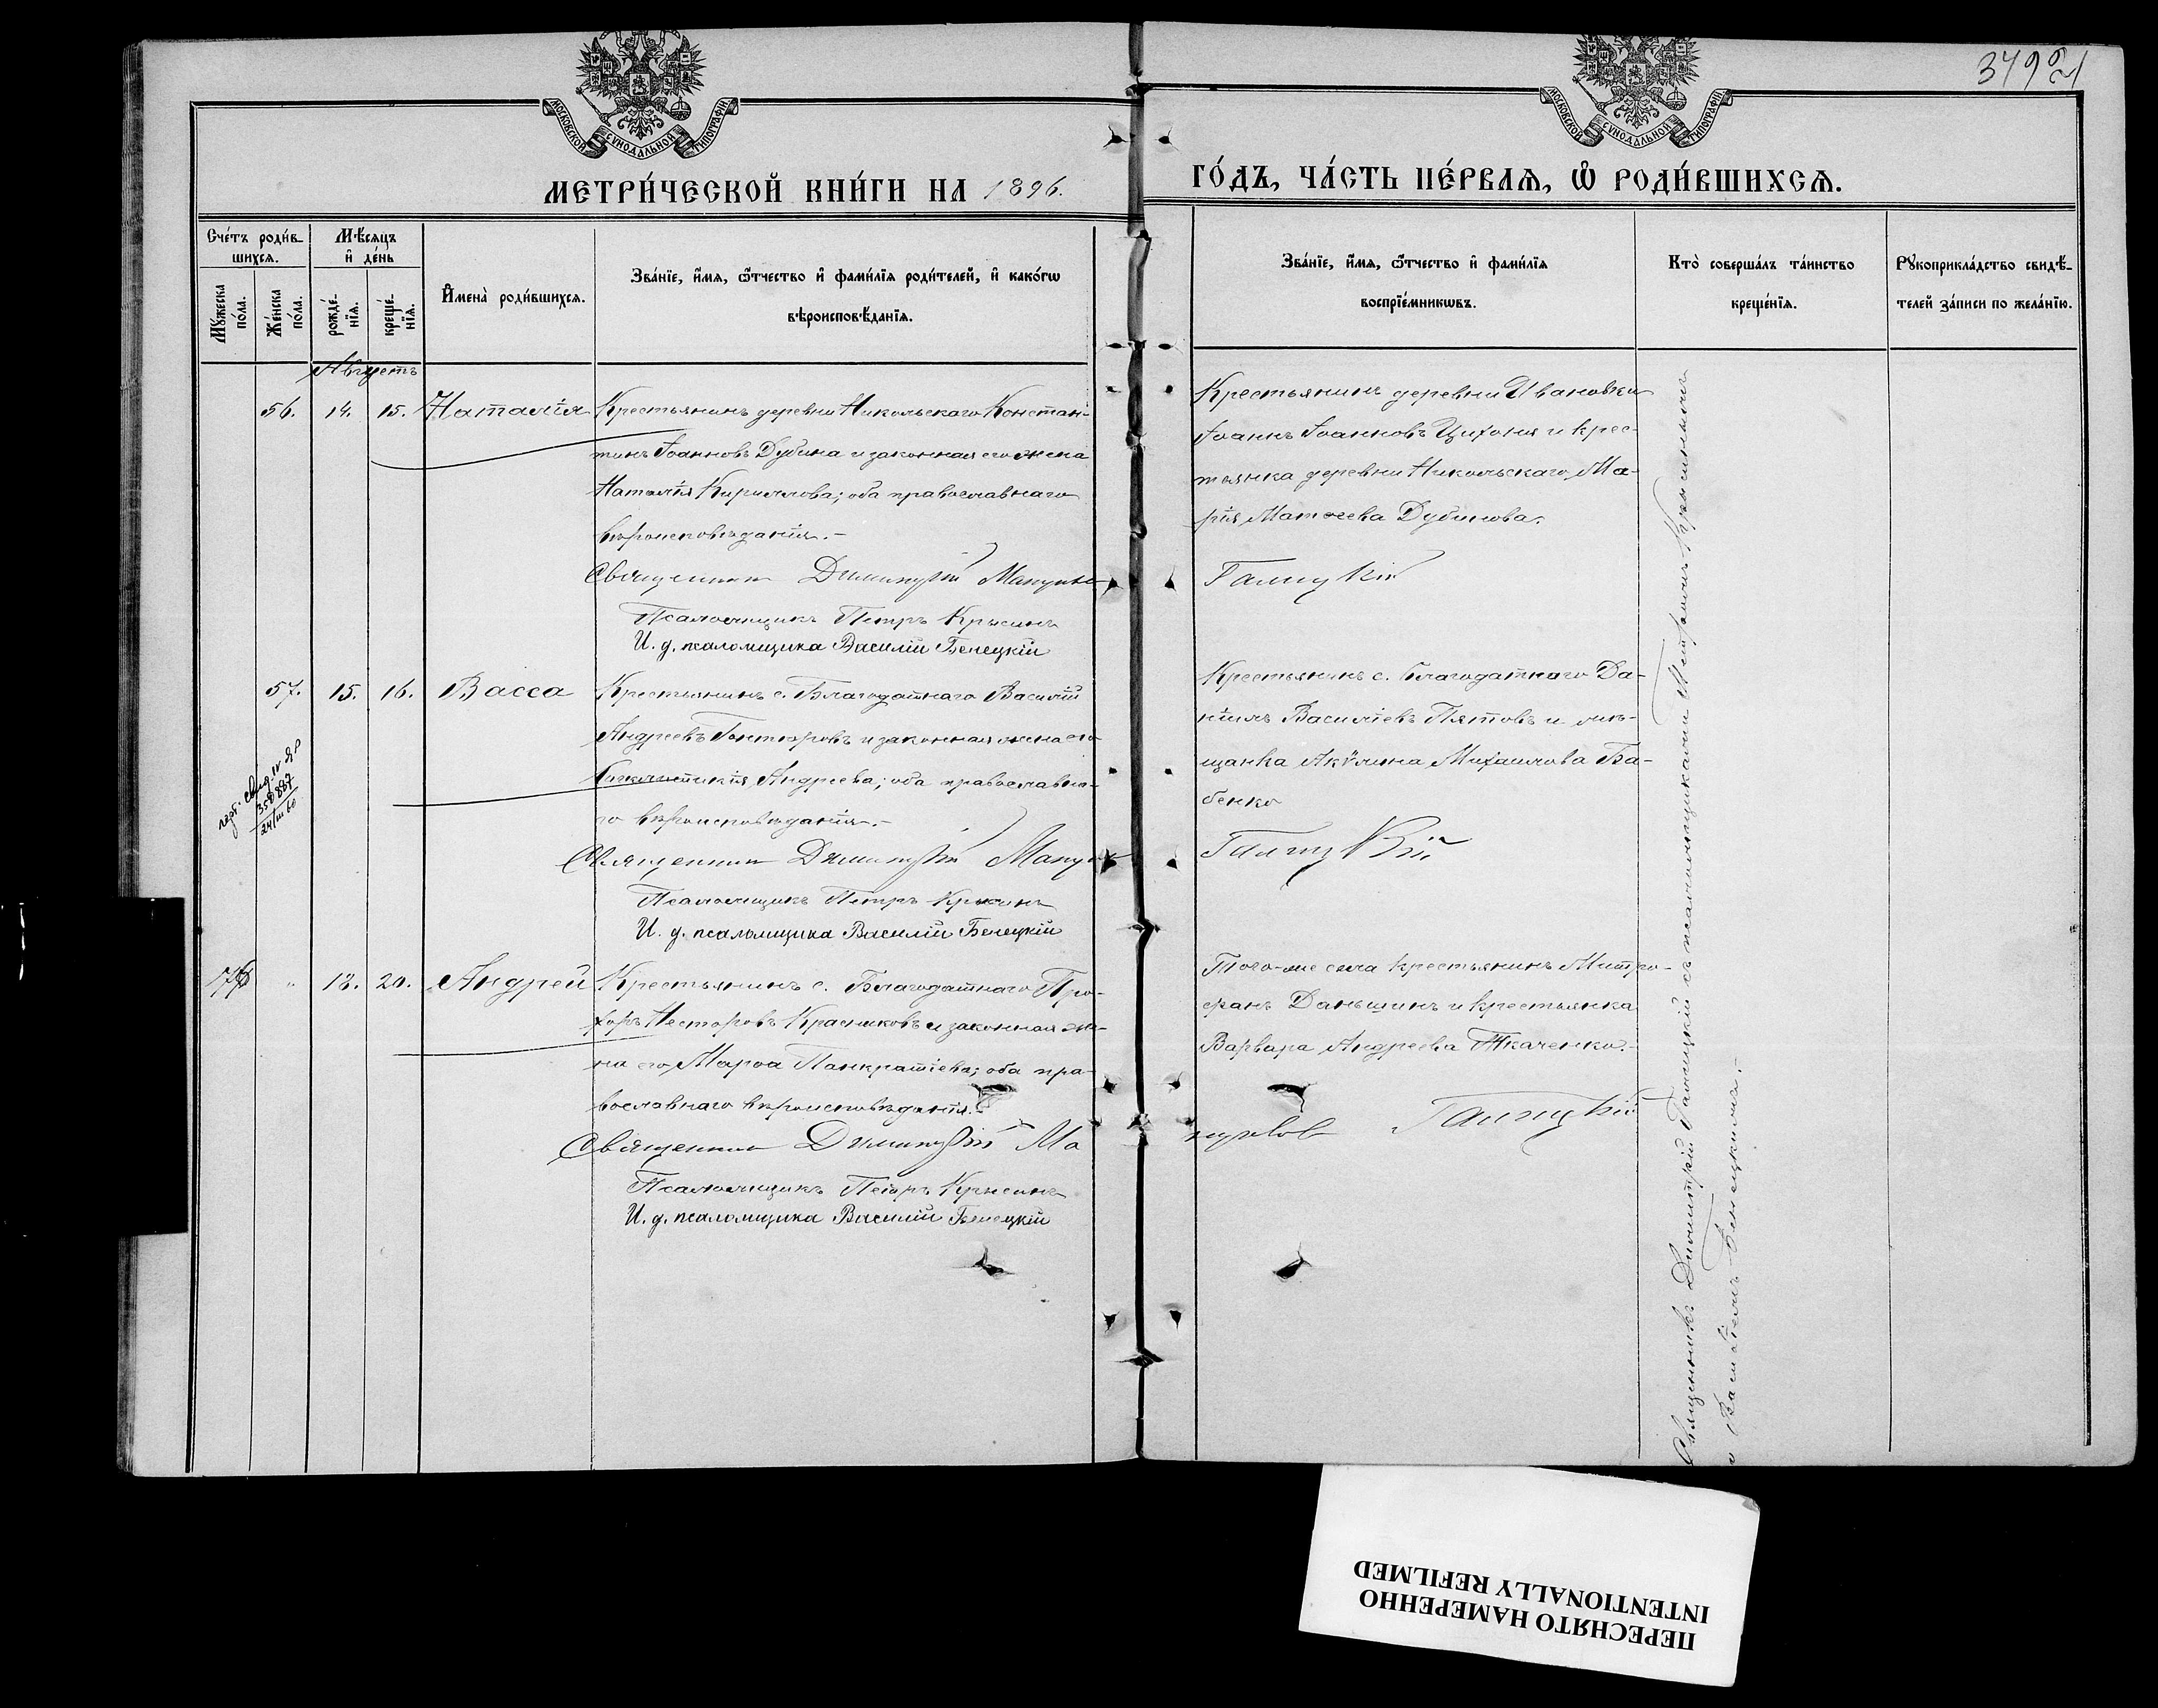 349
МОСКОВСКОЙ СѴНОДАЛЬНОЙ ТИПОГРАФІИ
МОСКОВСКОЙ СѴНОДАЛЬНОЙ ТИПОГРАФІИ
МЕТРИ́ЧЕСКОЙ КНИ́ГИ НА 1896.
ГО́ДЪ, ЧА́СТЬ ПЕ́РВАѦ, Ѡ҆ РОДИ́ВШИХСѦ.
Сче́тъ роди́в-
шихсѧ.
Мꙋ́жеска
по́ла.
Же́нска
по́ла.
Мѣ́сѧцъ
и҆ де́нь
рожде́-
нїѧ.
креще́-
нїѧ.
И҆мена̀ роди́вшихсѧ.
Зва́нїе, и҆́мѧ, ѻ҆́тчество и҆ фами́лїѧ роди́телей, и҆ како́гѡ
вѣроисповѣ́данїѧ.
Зва́нїе, и҆́мѧ, ѻ҆́тчество и҆ фами́лїѧ
воспрїе́мникѡвъ.
Кто̀ соверша́лъ та́инство
креще́нїѧ.
Рꙋкоприкла́дство свидѣ́-
телей за́писи по жела́нїю.
Августъ
56. 14. 15. Наталія
Крестьянинъ деревни Никольскаго Констан-
тинъ Іоанновъ Дубина и законная его жена
Наталія Кириллова; оба православнаго
вѣроисповѣданія.-
Священник Димитрій
Псаломщикъ Петръ Крысинъ
И. д. псаломщика Василій Бенецкій
Крестьянинъ деревни Ивановки
Іоаннъ Іоанновъ Цихоня и крес-
тьянка деревни Никольскаго Ма-
рія Матѳеева Дубинова.
Галицкій
57. 15. 16. Васса
Крестьянинъ с. Благодатнаго Василій
Андреевъ и законная жена его
Андреева; оба православна-
го вѣроисповѣданія.-
Священник Димитрій
Псаломщикъ Петръ Крысинъ
И. д. псаломщика Василій Бенецкій
358887
24/III 60
Крестьянинъ с. Благодатнаго Да-
ніилъ Василіевъ Пятовъ и мѣ-
щанка Акѵлина Михаилова Ба-
бенко
Галицкій
18. 20. Андрей
Крестьянинъ с. Благодатнаго Про-
хоръ Несторовъ Красниковъ и законная же-
на его Марѳа Панкратіева; оба пра-
вославнаго вѣроисповѣданія.
Священник Димитрій Ма
Псаломщикъ Петръ Крысинъ
И. д. псаломщика Василій Бенецкій
Того-же села крестьянинъ Митро-
фанъ Даньшинъ и крестьянка
Варвара Андреева Ткаченко.-
Галицкій
Священникъ Димитрій Галицкій съ псаломщиками Петромъ Крысинымъ
и Василіемъ Бенецкимъ.-
ПЕРЕСНЯТО НАМЕРЕННО
INTENTIONALLY REFILMED